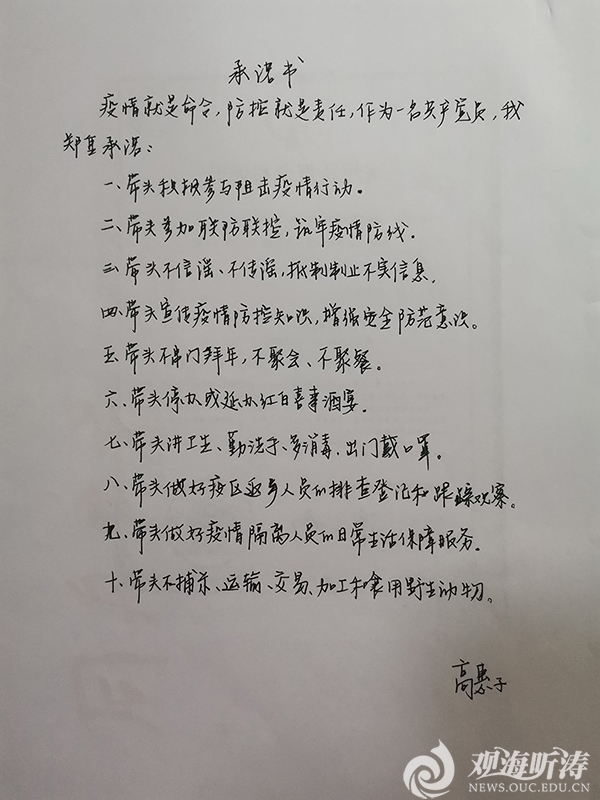 承诺书
疫情就是命令,防控就是责任,作为一名共产党员,我
郑重承诺:
一、带头积极参与阻击疫情行动。
二、带头参加联防联控,筑牢疫情防线。
三、带头不信谣、不传谣,抵制制止不实信息。
四、带头宣传疫情防控知识,增强安全防范意识。
五、带头不串门拜年,不聚会、不聚餐。
六、带头停办或延办红白喜事酒宴。
七、带头讲卫生、勤洗手、多消毒、出门戴口罩。
八、带头做好疫区返乡人员的排查登记和跟踪观察。
九、带头做好疫情隔离人员的日常生活保障服务。
十、带头不捕杀、运输、交易、加工和食用野生动物。
高 子
观海听涛
NEWS.OUC.EDU.CN